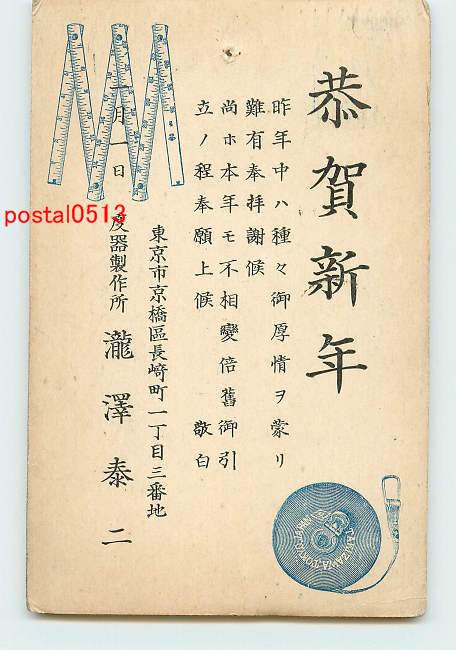 恭賀新年
昨年中ハ種々御厚情ヲ蒙リ
難有奉拝謝候
尚ホ本年モ不相變倍舊御引
立ノ程奉願上候 敬白
東京市京橋區長崎町一丁目三番地
一月一日 度器製作所 瀧澤泰二
postal0513
TAKIZAWA, TOKYO